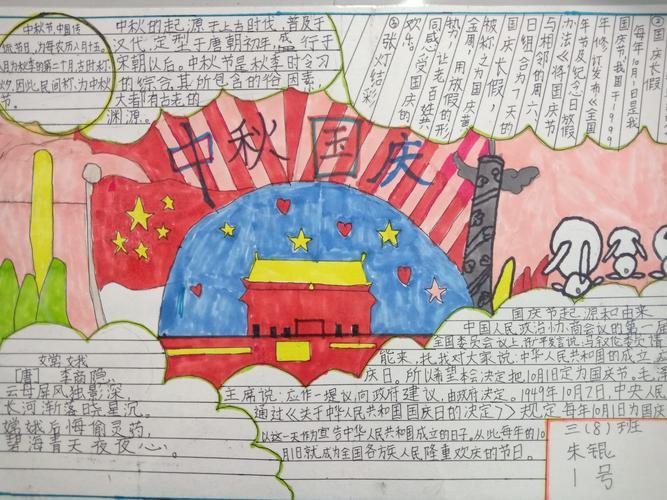 中秋节,中国传
统节日,为每农历八月十五.
八月为秋季的第二个月,古时称
因此,民间称,为中秋
节。
中秋的起源于上古时代,普及于
汉代,定型于唐朝初年,盛行于
宋朝以后。中秋节是秋季时令习
俗的综合,其所包含的俗因素,
大都有古老的
渊源。
国庆长假
每年10月1日是我
国庆节,我国于1999
年修订发布《全国
年节及纪念日放假
办法》将国庆节
与相邻的周六、
日组合为7天的
国庆长假,
被称之为国庆黄
金周,用放假的形
势,让老百姓共
同感受国庆的
欢悦。
②张灯结彩
中秋国庆
[唐] 李商隐,
云母屏风独影深,
长河渐落晓星沉。
嫦娥后悔偷灵药,
碧海青天夜夜心。
国庆节起源和由来
中国人民政治协商会议的第一
全国委员会议上,许广平发言说,马叙伦委员请
能来,托我对大家说:中华人民共和国的成立
庆日。所以希望本会决定把10月1日定为国庆节,毛泽
主席说:应作一提议,向政府建议,由政府决定。1949年10月2日,中央人
通过《关于中华人民共和国国庆日的决定》规定每年10月1日为国庆
以这一天作为宣告中华人民共和国成立的日子。从此,每年的10
月1日就成为全国各族人民隆重欢庆的节日。
三(8)班
朱锟
1号